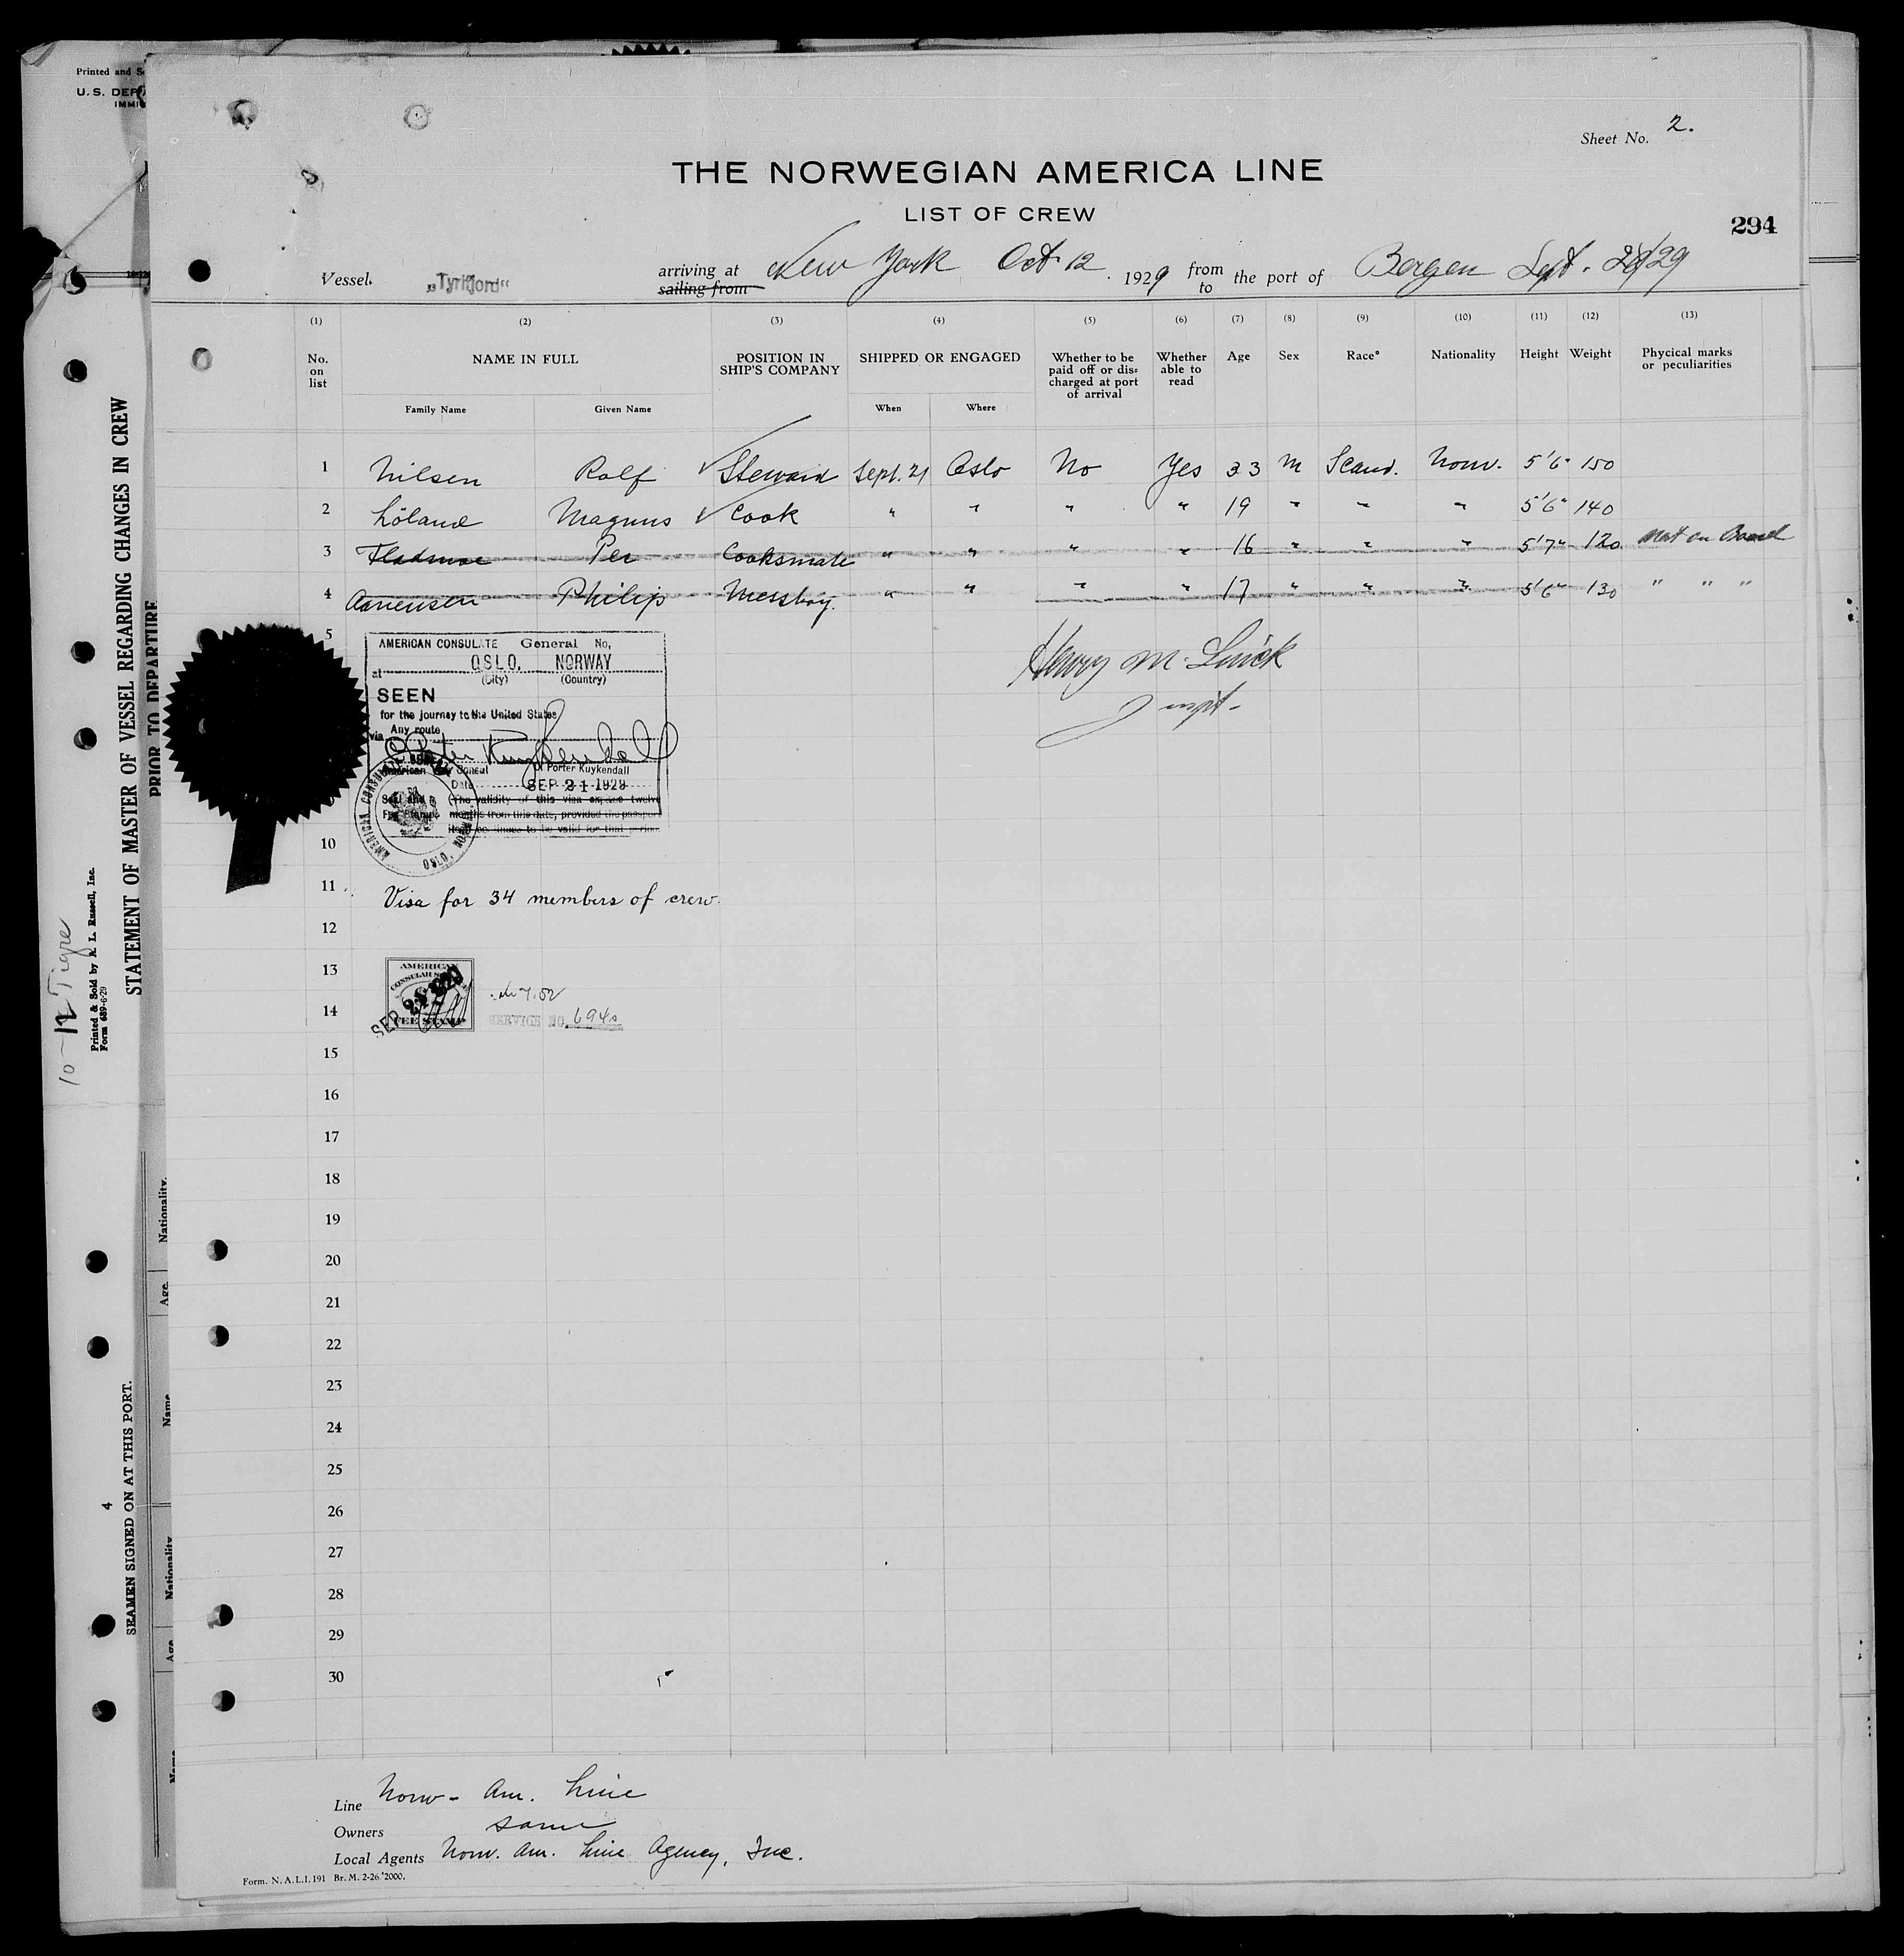 Sheet No. 2.
THE NORWEGIAN AMERICA LINE
LIST OF CREW
294
Vessel. „Tyrifjord“ arriving at sailing from New York Oct 12 1929 from to the port of Bergen Sept. 28/29
(1) (2) (3) (4) (5) (6) (7) (8) (9) (10) (11) (12) (13)
No. on list NAME IN FULL POSITION IN SHIP'S COMPANY SHIPPED OR ENGAGED Whether to be paid off or dis= charged at port of arrival Whether able to read Age Sex Race* Nationality Height Weight Phycical marks or peculiarities
Family Name Given Name When Where
1 Nilsen Rolf Steward Sept. 21 Oslo No Yes 33 M Scand. Norw. 5'6" 150
2 Löland Magnus Cook " " " " 19 " " " 5'6" 140
3 Fladmoe Per Cooksmate " " " " 16 " " " 5'7" 120 Not on Board
4 Aanensen Philip Messboy. " " " " 17 " " " 5'6" 130 " " "
5
AMERICAN CONSULATE General No,
at OSLO, NORWAY
(City) (Country)
SEEN
for the journey to the United States
via Any route
American Vice Consul D. Porter Kuykendall
Date SEP 21 1929
Seal and (The validity of this visa expires twelve
Fee Stamp months from this date, provided the passport
continues to be valid for that
AMERICAN CONSULATE
OSLO, NORWAY
Henry M. Linick
Inspt-
10
11 Visa for 34 members of crew.
12
13
AMERICAN
CONSULAR
FEE STAMP
SEP
14 SERVICE NO. 6940
15
16
17
18
19
20
21
22
23
24
25
26
27
28
29
30
Line Norw- Am. Line
Owners same
Local Agents Norw. Am. Line Agency, Inc.
Form. N. A. L. I. 191 Br. M. 2-26.'2000.
Printed and
U. S. DEP
IMMI
STATEMENT OF MASTER OF VESSEL REGARDING CHANGES IN CREW
PRIOR TO DEPARTURE
Printed & Sold by A. L. Russell, Inc.
Form 689-6-29
10-12 Tigre
4
SEAMEN SIGNED ON AT THIS PORT.
Nationality.
Age
Name
Nationality
Age
Name